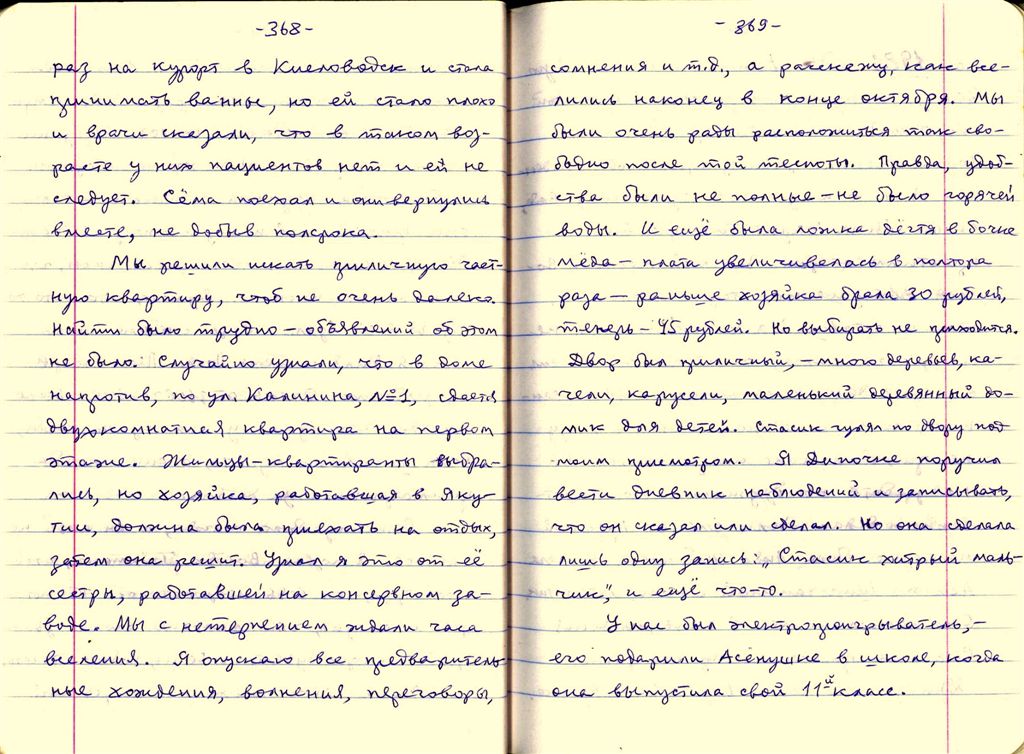 -368-
раз на курорт в Кисловодск и стала
принимать ванны, но ей стало плохо
и врачи сказали, что в таком воз-
расте у них пациентов нет и ей не
следует. Сёма поехал и они вернулись
вместе, не добыв полсрока.
Мы решили искать приличную част-
ную квартиру, чтоб не очень далеко.
Найти было трудно – объявлений об этом
не было. Случайно узнали, что в доме
напротив, по ул. Калинина, №1, сдается
двухкомнатная квартира на первом
этаже. Жильцы-квартиранты выбра-
лись, но хозяйка, работавшая в Яку-
тии, должна была приехать на отдых,
затем она решит. Узнал я это от её
сестры, работавшей на консервном за-
воде. Мы с нетерпением ждали часа
вселения. Я опускаю все предваритель-
ные хождения, волнения, переговоры,
-369-
сомнения и т.д., а расскажу, как все-
лились наконец в конце октября. Мы
были очень рады расположиться так сво-
бодно после той тесноты. Правда, удоб-
ства были не полные – не было горячей
воды. И ещё была ложка дёгтя в бочке
мёда – плата увеличивалась в полтора
раза – раньше хозяйка брала 30 рублей,
теперь – 45 рублей. Но выбирать не приходится.
Двор был приличный, – много деревьев, ка-
чели, карусели, маленький деревянный до-
мик для детей. Стасик гулял по двору под
моим присмотром. Я Диночке поручил
вести дневник наблюдений и записывать,
что он сказал или сделал. Но она сделала
лишь одну запись: „Стасик хитрый маль-
чик“, и ещё что-то.
У нас был электропроигрыватель, –
его подарили Асенушке в школе, когда
она выпустила свой 11й класс.